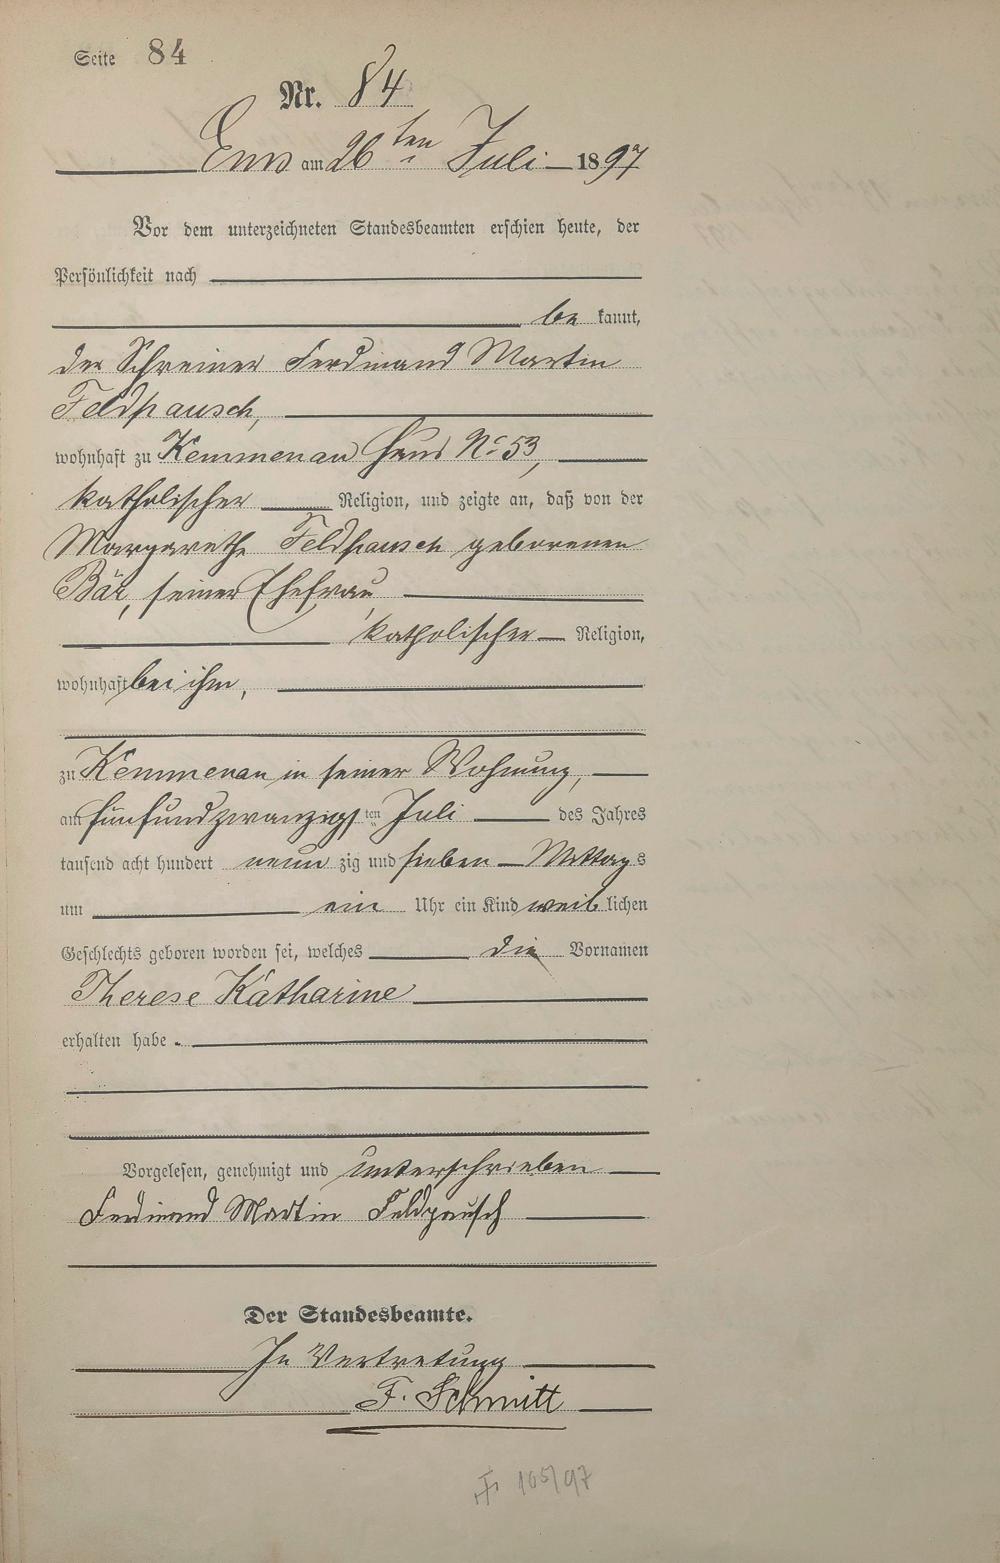 Seite 84
Nr. 84
Ems am 26ten Juli 1897
Vor dem unterzeichneten Standesbeamten erschien heute, der
Persönlichkeit nach
be kannt,
der Schreiner Ferdinand Martin
Feldpausch,
wohnhaft zu Kemmenau Haus No 53,
katholischer Religion, und zeigte an, daß von der
Margarethe Feldpausch geborenen
Bär, seiner Ehefrau,
katholischer Religion,
wohnhaft bei ihm,
zu Kemmenau in seiner Wohnung,
am fünfundzwanzigsten Juli des Jahres
tausend acht hundert neun zig und sieben Mittags
um ein Uhr ein Kind weib lichen
Geschlechts geboren worden sei, welches die Vornamen
Therese Katharine
erhalten habe.
Vorgelesen, genehmigt und unterschrieben
Ferdinand Martin Feldpausch
Der Standesbeamte.
In Vertretung
F. Schmitt
105/97